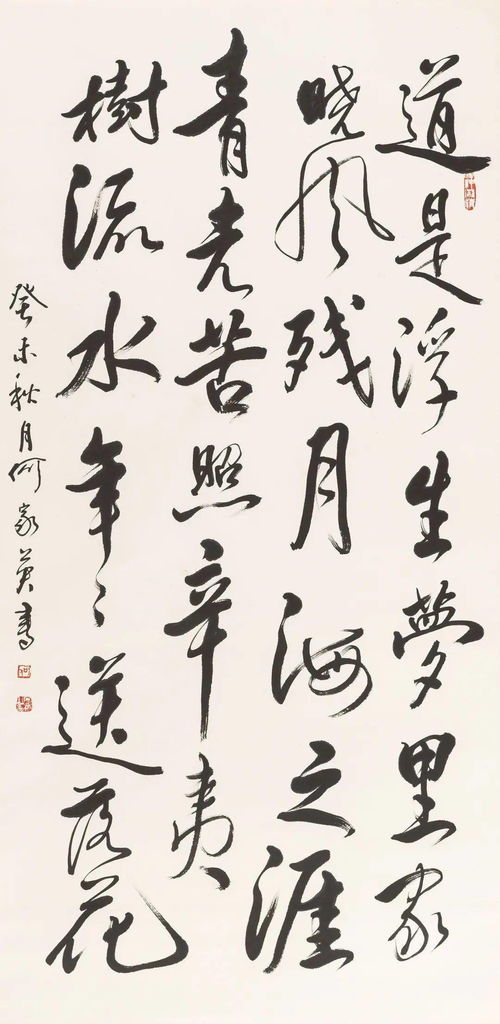 道是浮生梦里家
晓风残月海之涯
青光苦照辛夷
樹流水年々送落花
癸未秋月何家英書